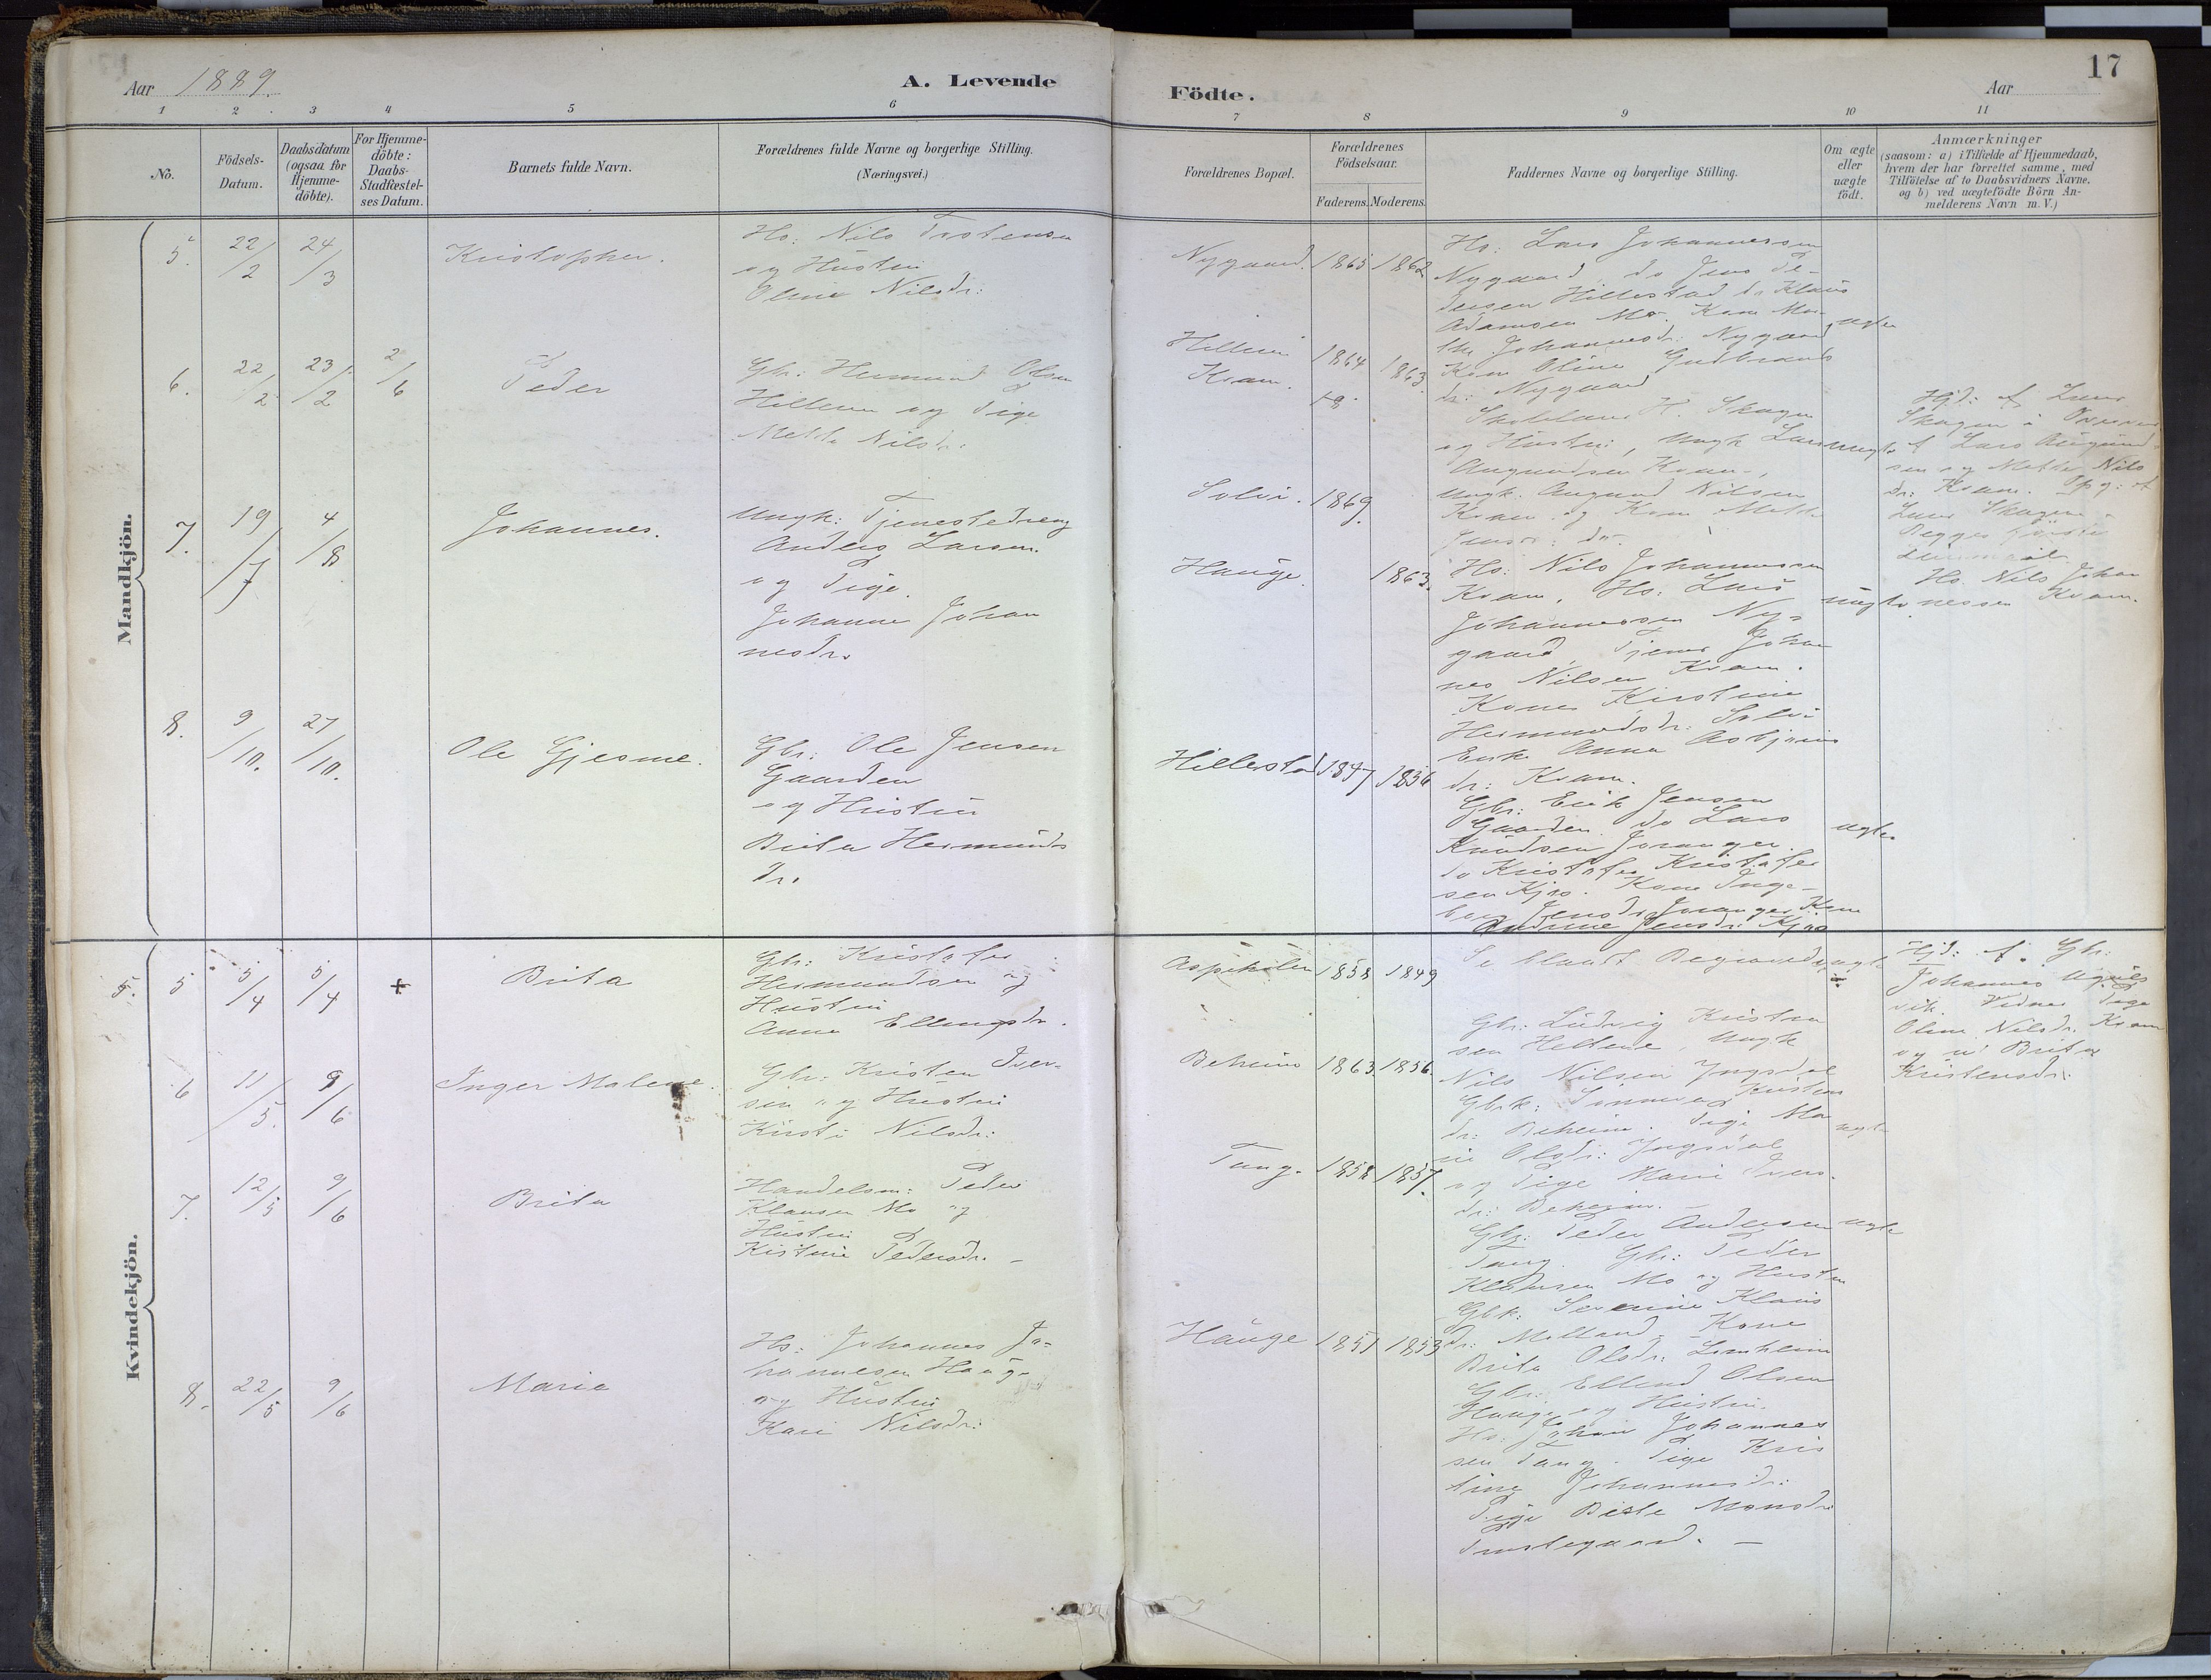 Aar 1889.
A. Levende
Födte.
Aar
17
1 2 3 4 5 6 7 8 9 10 11
No.
Födsels-
Datum.
Daabsdatum
(ogsaa for
Hjemme-
döbte).
For Hjemme-
döbte:
Daabs-
Stadfæstel-
ses Datum.
Barnets fulde Navn.
Forældrenes fulde Navne og borgerlige Stilling.
(Næringsvei.)
Forældrenes Bopæl.
Forældrenes
Födselsaar.
Faderens. Moderens.
Faddernes Navne og borgerlige Stilling.
Om ægte
eller
uægte
födt.
Anmærkninger
(saasom: a) i Tilfælde af Hjemmedaab,
hvem der har forrettet samme, med
Tilföielse af to Daabsvidners Navne.
og b) ved uægtefödte Börn An-
melderens Navn m. V.)
Mandkjön.
5. 22/2 24/3
Kristopher.
Hs: Nils Trstensen
og Hustru
Oline Nilsdr:
Nygaard. 1865 1862
Hs: Lars Johannessen
Nygaard, do Jens Pe-
dersen Hillestad do Klaus
Adamsen Mo. Kone Mar-
the Johannesdr: Nygaard
Kone Oline Gudbrands
dr: Nygaard
ægte
6. 22/2 23/2 2/6
Peder
Gbr: Hermund Olsen
Hillerin og Pige
Mette Nilsdr:
Kvam. 1864 1863.
Skolelærer K. Skagen
og Hustru, Ungk Lars
Augundsen Kvam,
Ungk: Augund Nilsen
Kvam og Kone Mette
Jensdr: do.
uægte
Hjd: af Lærer
Skagen i
af Lars Augund-
sen og Mette Nils
dr: Kvam. Opg: af
Lærer Skagen
7. 19/7 4/8
Johannes.
Ungk: Tjenestedreng
Anders Larsen.
og Pige.
Johanne Johan
nesdr.
Solvi. 1869.
Hauge. 1863.
Hs: Nils Johannessen
Kvam, Hs: Lars
Johannessen Ny-
gaard, Tjener Johan
nes Nilsen Kvam.
Kone Kirstine
Hermundsdr: Solvi
Enke Anna Asbjørns
dr: Kvam.
uægte
Hs. Nils Johan
nessen Kvam.
8. 9/10. 27/10.
Ole Gjesme.
Gbr: Ole Jensen
Gaarden
og Hustru
Brita Hermunds
dr.
Hillestad 1847 1856
Gbr: Erik Jensen
Gaarden. do Lars
Knudsen Joranger.
do Kristofer Kristofer
sen Kjos. Kone Inge-
borg Jensdr Joranger Kone
Andrine Jensdr: Kjos
ægte
Kvindekjön.
5. 5 5/4 5/4 +
Brita
Gbr: Kristofer
Hermundsen og
Hustru
Anna Ellingsdr.
Aspeholen 1858 1849
Se blandt Begravede
ægte
Hjd: af Gbr:
Johannes
vik. Vidner Pige
Oline Nilsdr. Kvam
og Brita
Kristensdr:
6 11/5. 9/6
Inger Malene.
Gbr: Kristen Iver-
sen og Hustru
Kirsti Nilsdr:
Beheim 1863. 1856.
Gbr: Ludvig Kristen
sen Heltene, Ungk
Nils Nilsen Yngsdal
Gbrk: Sønneva Kristens
dr: Beheim. Pige Ma
rie Olsdr: Yngsdal
og Pige Marie Ivers-
dr: Beheim. —
ægte
7. 12/5 9/6
Brita
Handelsm: Peder
Klausen Mo og
Hustru
Kistine Pedersdr. —
Tang. 1858 1857.
Gbr: Peder Andersen
Tang. Gbr: Peder
Klausen Mo og Hustru
Gbk: Severine Klaus
dr: Molland. Kone
Brita Olsdr: Lomheim
ægte
8. 22/5 9/6
Marie
Hs: Johannes Jo-
hannesen Haug-
og Hustru
Kari Nilsdr:
Hauge 1851 1853
Gbr: Ellend Olsen
Hauge og Hustru.
Hs: Johan Johannes
sen Tang. Pige Kris
tine Johannesdr:
Pige Brite Monsdr:
Prestegaard. —